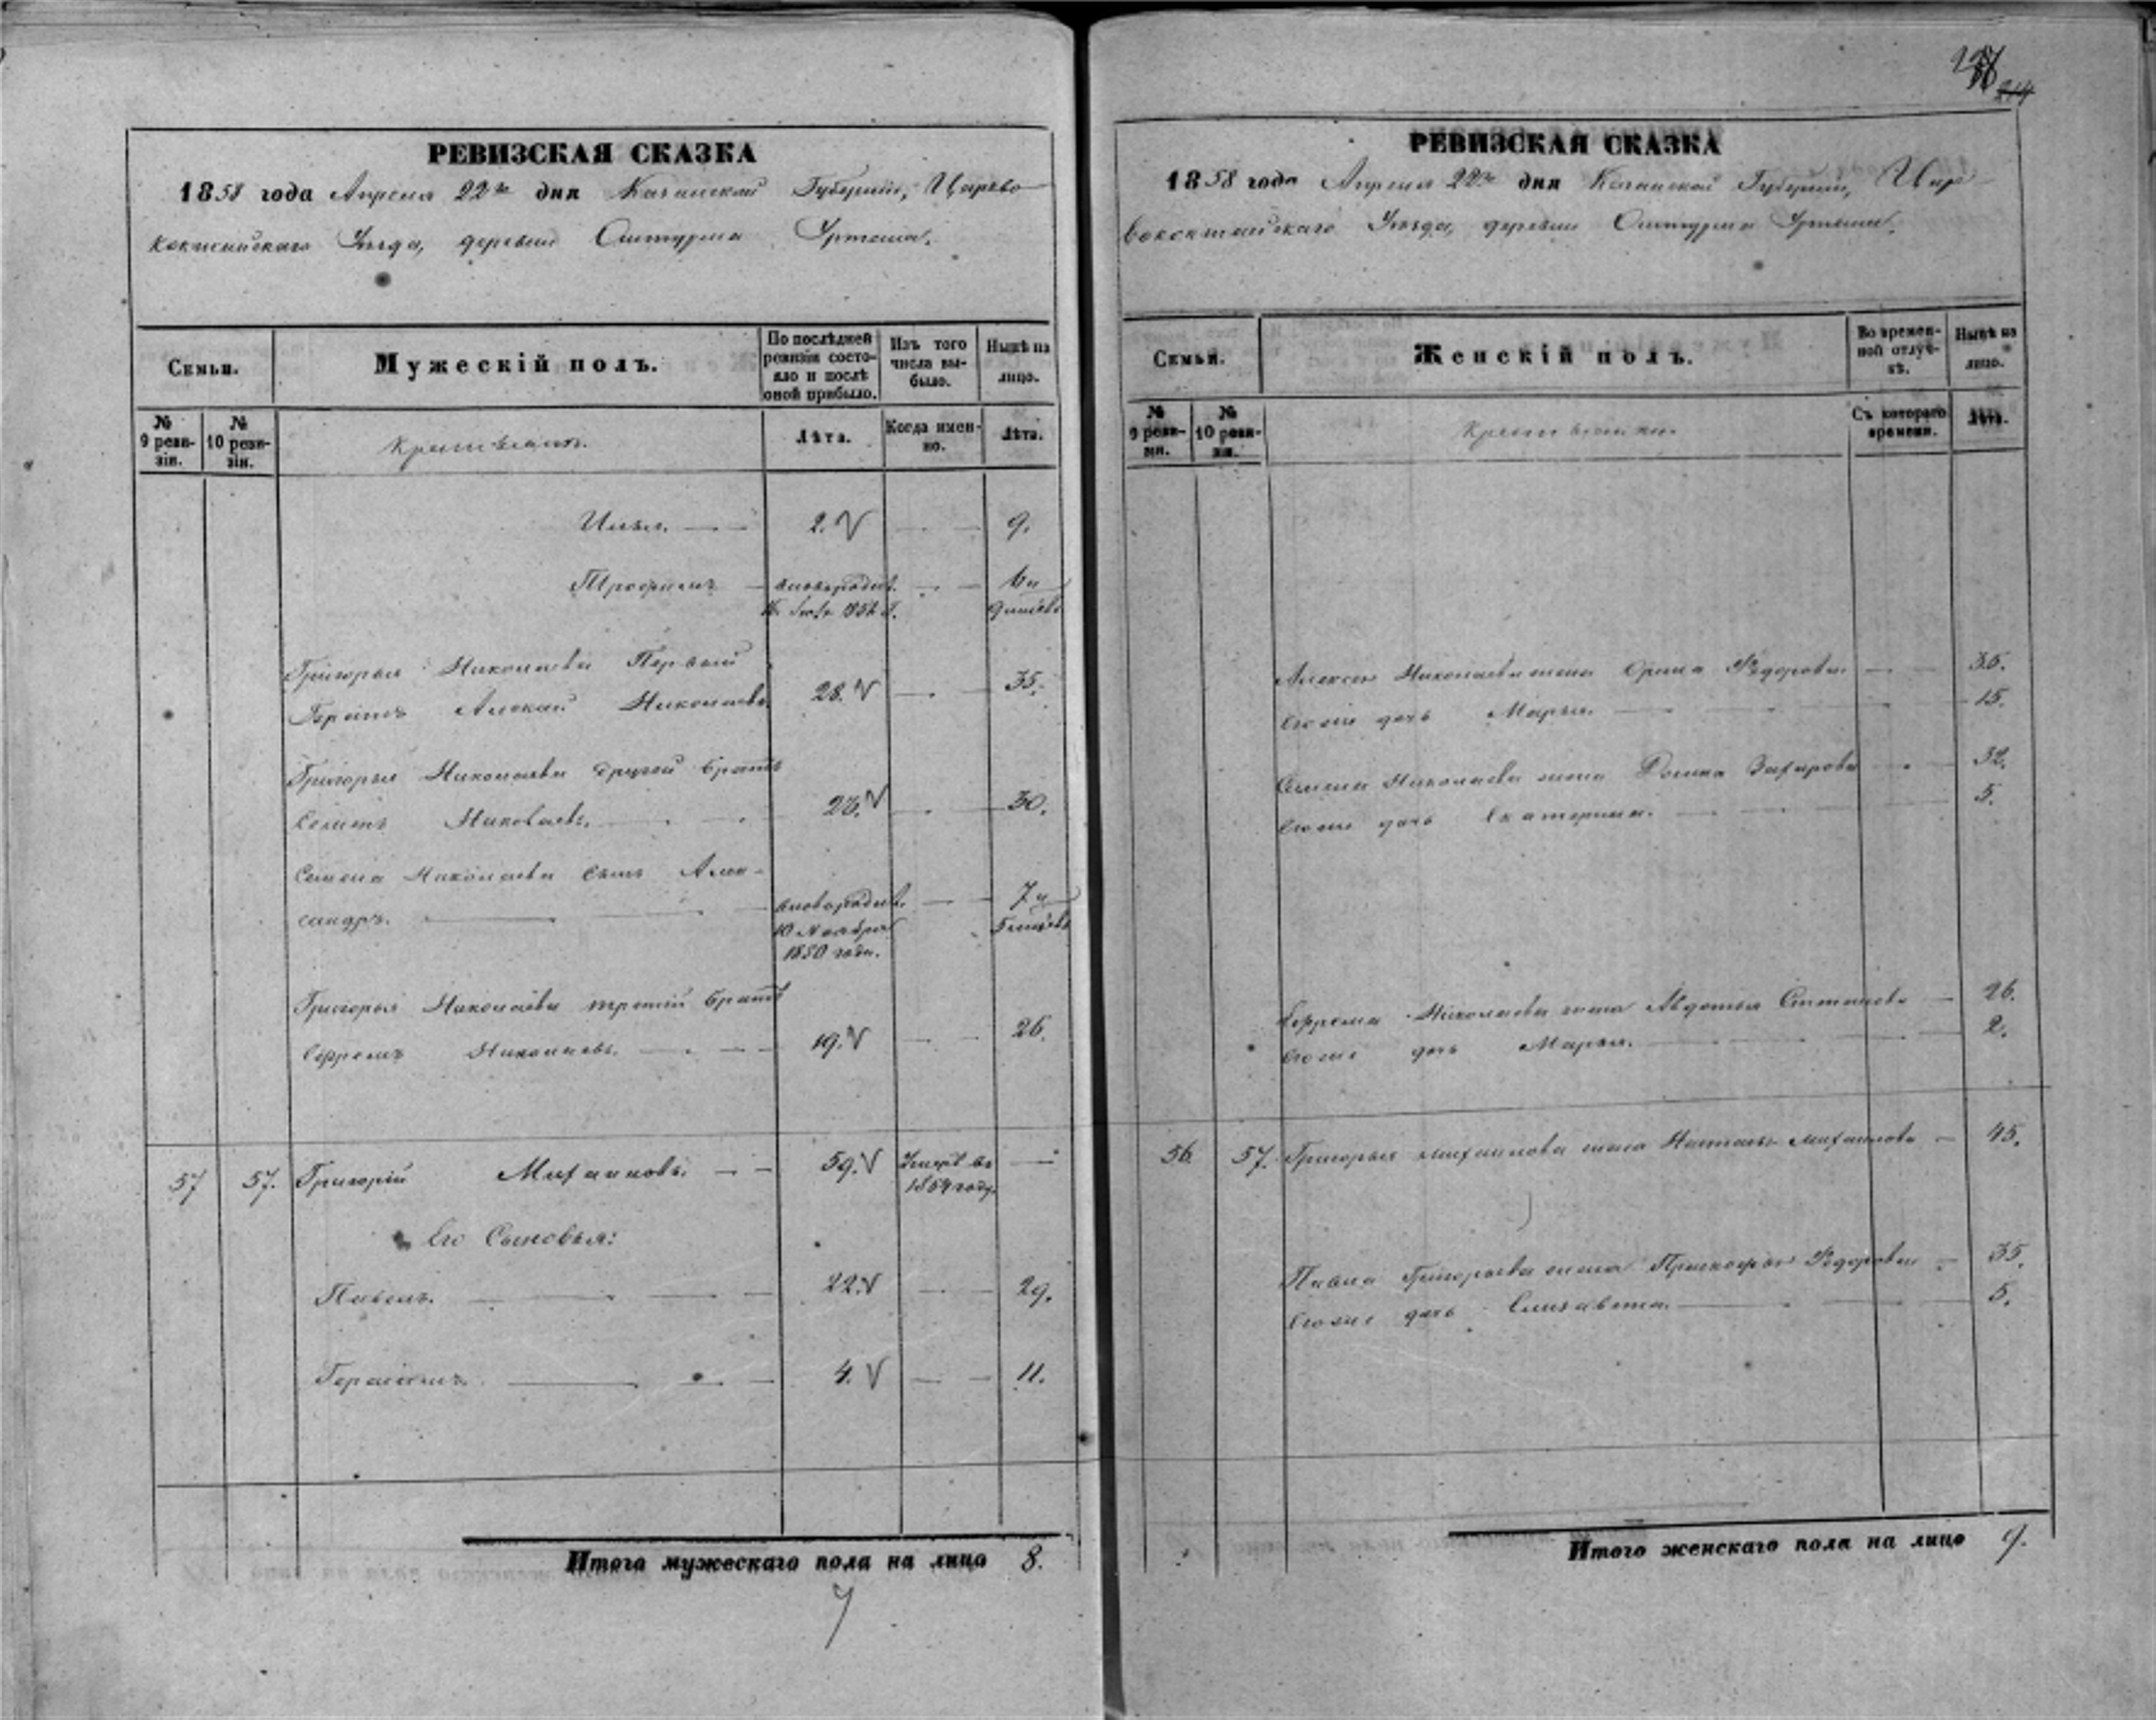 214
РЕВИЗСКАЯ СКАЗКА
1858 года Апреля 22го дня Казанской Губернии, Царево
кокшайскаго Уезда, деревни
Семьи.
Мужескій полъ.
По послѣдней ревизіи состояло и послѣ оной прибыло.
Изъ того числа выбыло.
Нынѣ на лицо.
№ 9 ревизіи.
№ 10 ревизіи.
Крестьяне.
Лѣта.
Когда именно.
Лѣта.
2. 9.
Трофимъ — новорожд. — 6 и
9 месяцев
Григорья Николаева Первый
братъ Алексей Николаевъ 28. — 35.
Григорья Николаева другой братъ
Семенъ Николаевъ. 23. — 30.
Семена Николаева сынъ Алек-
сандръ. новорожд. — 7 и
10 Ноября 5 месяцев
1850 года.
Григорья Николаева третий братъ
Ефремъ Николаевъ. 19. — 26.
57 57. Григорий Михайловъ. 59. Умеръ въ —
1854 году.
Его Сыновья:
Павелъ. 22. — 29.
Герасимъ. 4. — 11.
Итого мужескаго пола на лицо 8.
РЕВИЗСКАЯ СКАЗКА
1858 года Апреля 22го дня Казанской Губернии, Цар
вококшайскаго Уезда, деревни
Семьи.
Женскій полъ.
Во временной отлучкѣ.
Нынѣ на лицо.
№ 9 ревизіи.
№ 10 ревизіи.
Крестьянки.
Съ котораго времени.
Лѣта.
Алексея Николаева жена Орина Федорова — 35.
Его же дочь Марья. — 15.
Семена Николаева жена Домна Захарова — 32.
Его же дочь Екатерина. — 5.
Ефрема Николаева жена Авдотья Степанова — 26.
Его же дочь Марья. — 2.
56. 57. Григорья Михайлова жена Наталья Михайлова — 45.
Павла Григорьева жена Прасковья Федорова — 35.
Его же дочь Елизавета. — 5.
Итого женскаго пола на лицо 9.